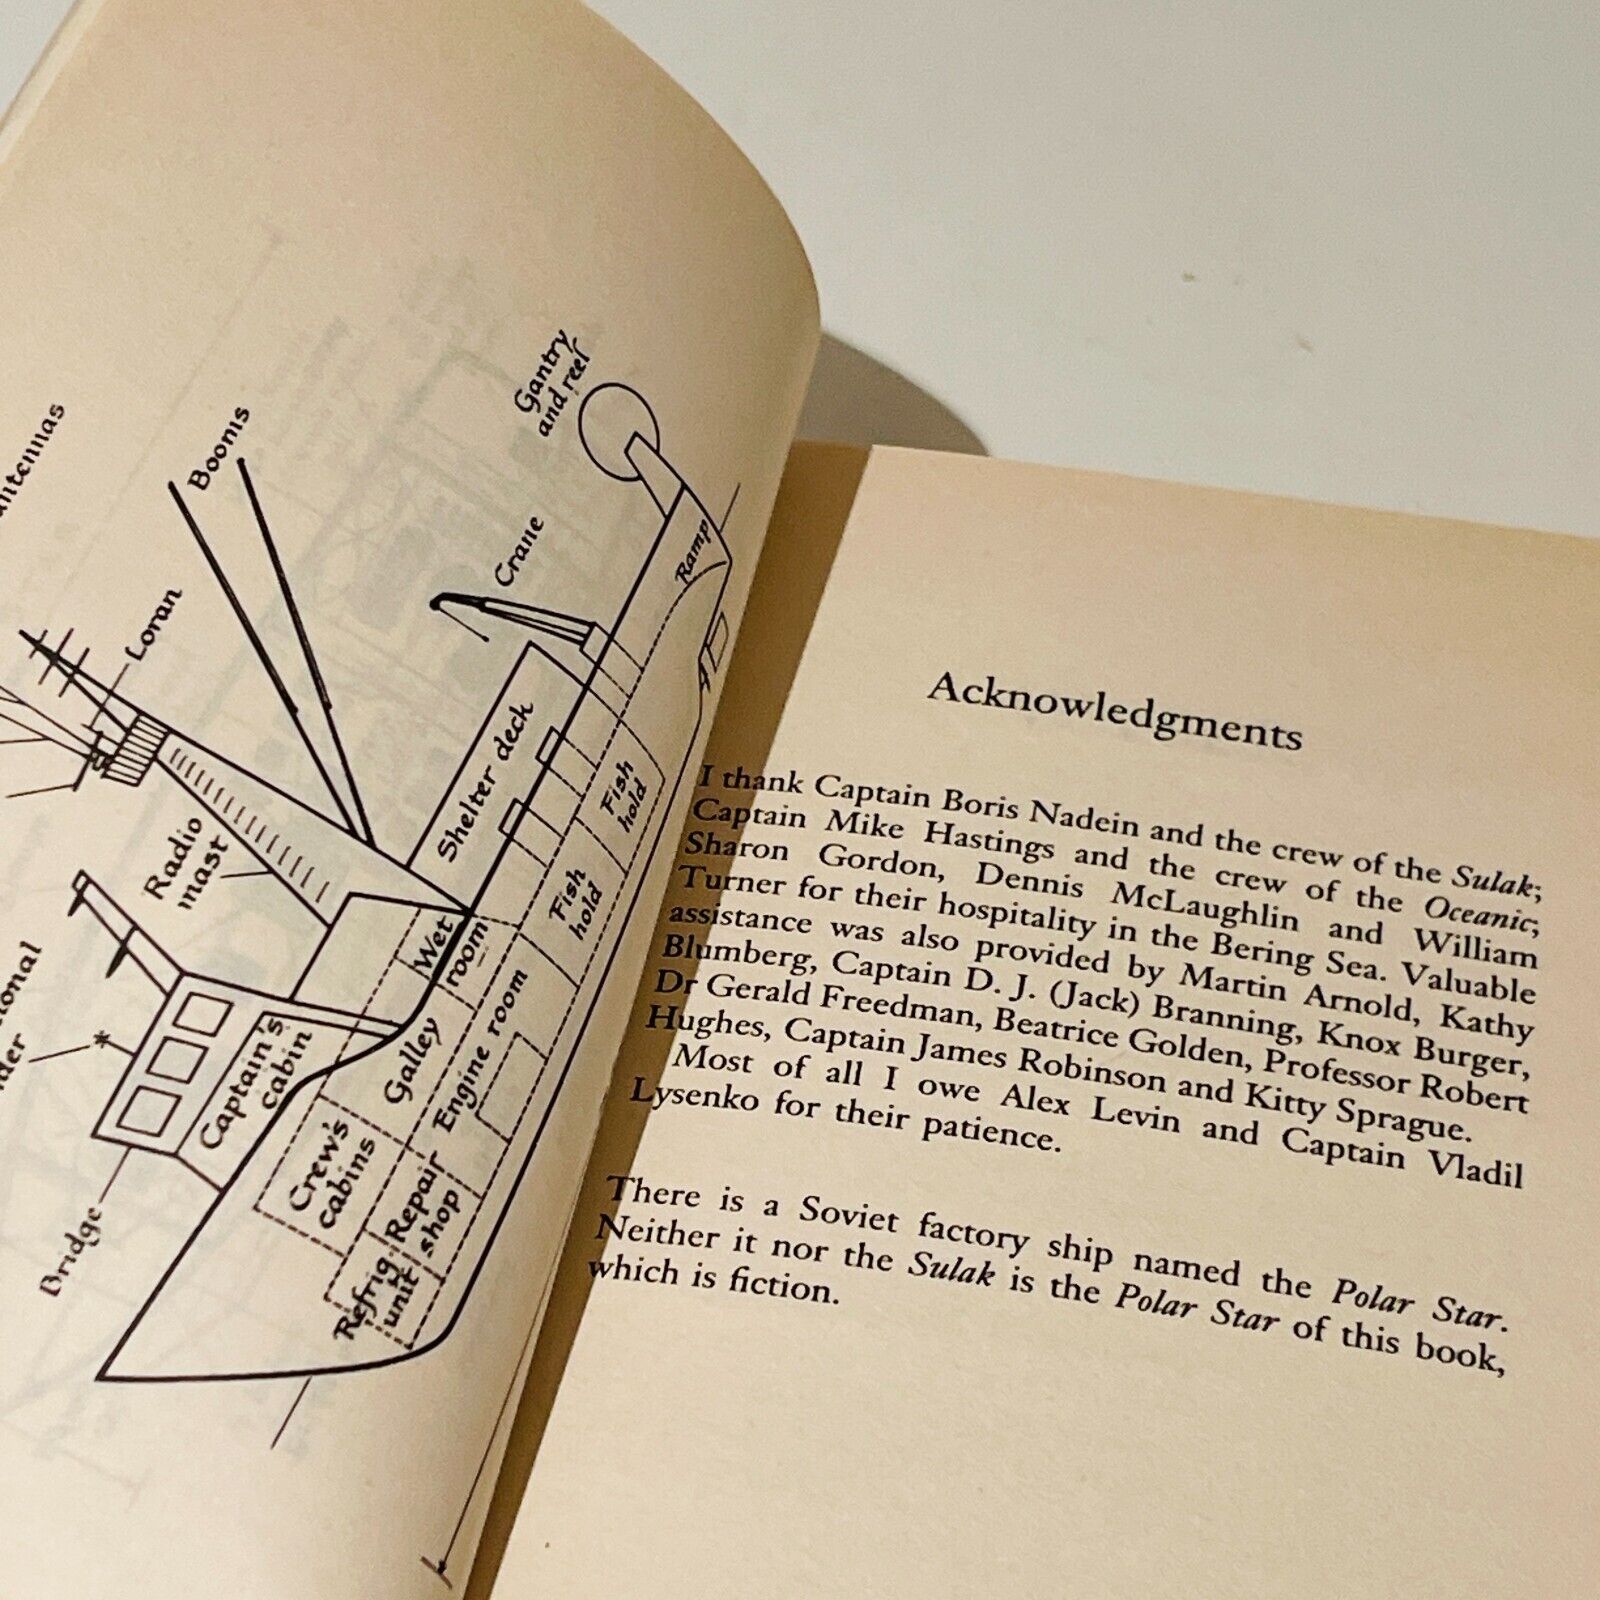 Gantry
and reel
Booms
Crane
Ramp
Loran
Shelter deck
Fish
hold
Radio
mast
Fish
hold
Wet
room
Captain's
cabin
Galley
Engine room
Crew's
cabins
Repair
shop
Bridge
Refrig.
unit
Acknowledgments
I thank Captain Boris Nadein and the crew of the Sulak;
Captain Mike Hastings and the crew of the Oceanic;
Sharon Gordon, Dennis McLaughlin and William
Turner for their hospitality in the Bering Sea. Valuable
assistance was also provided by Martin Arnold, Kathy
Blumberg, Captain D. J. (Jack) Branning, Knox Burger,
Dr Gerald Freedman, Beatrice Golden, Professor Robert
Hughes, Captain James Robinson and Kitty Sprague.
Most of all I owe Alex Levin and Captain Vladil
Lysenko for their patience.
There is a Soviet factory ship named the Polar Star.
Neither it nor the Sulak is the Polar Star of this book,
which is fiction.